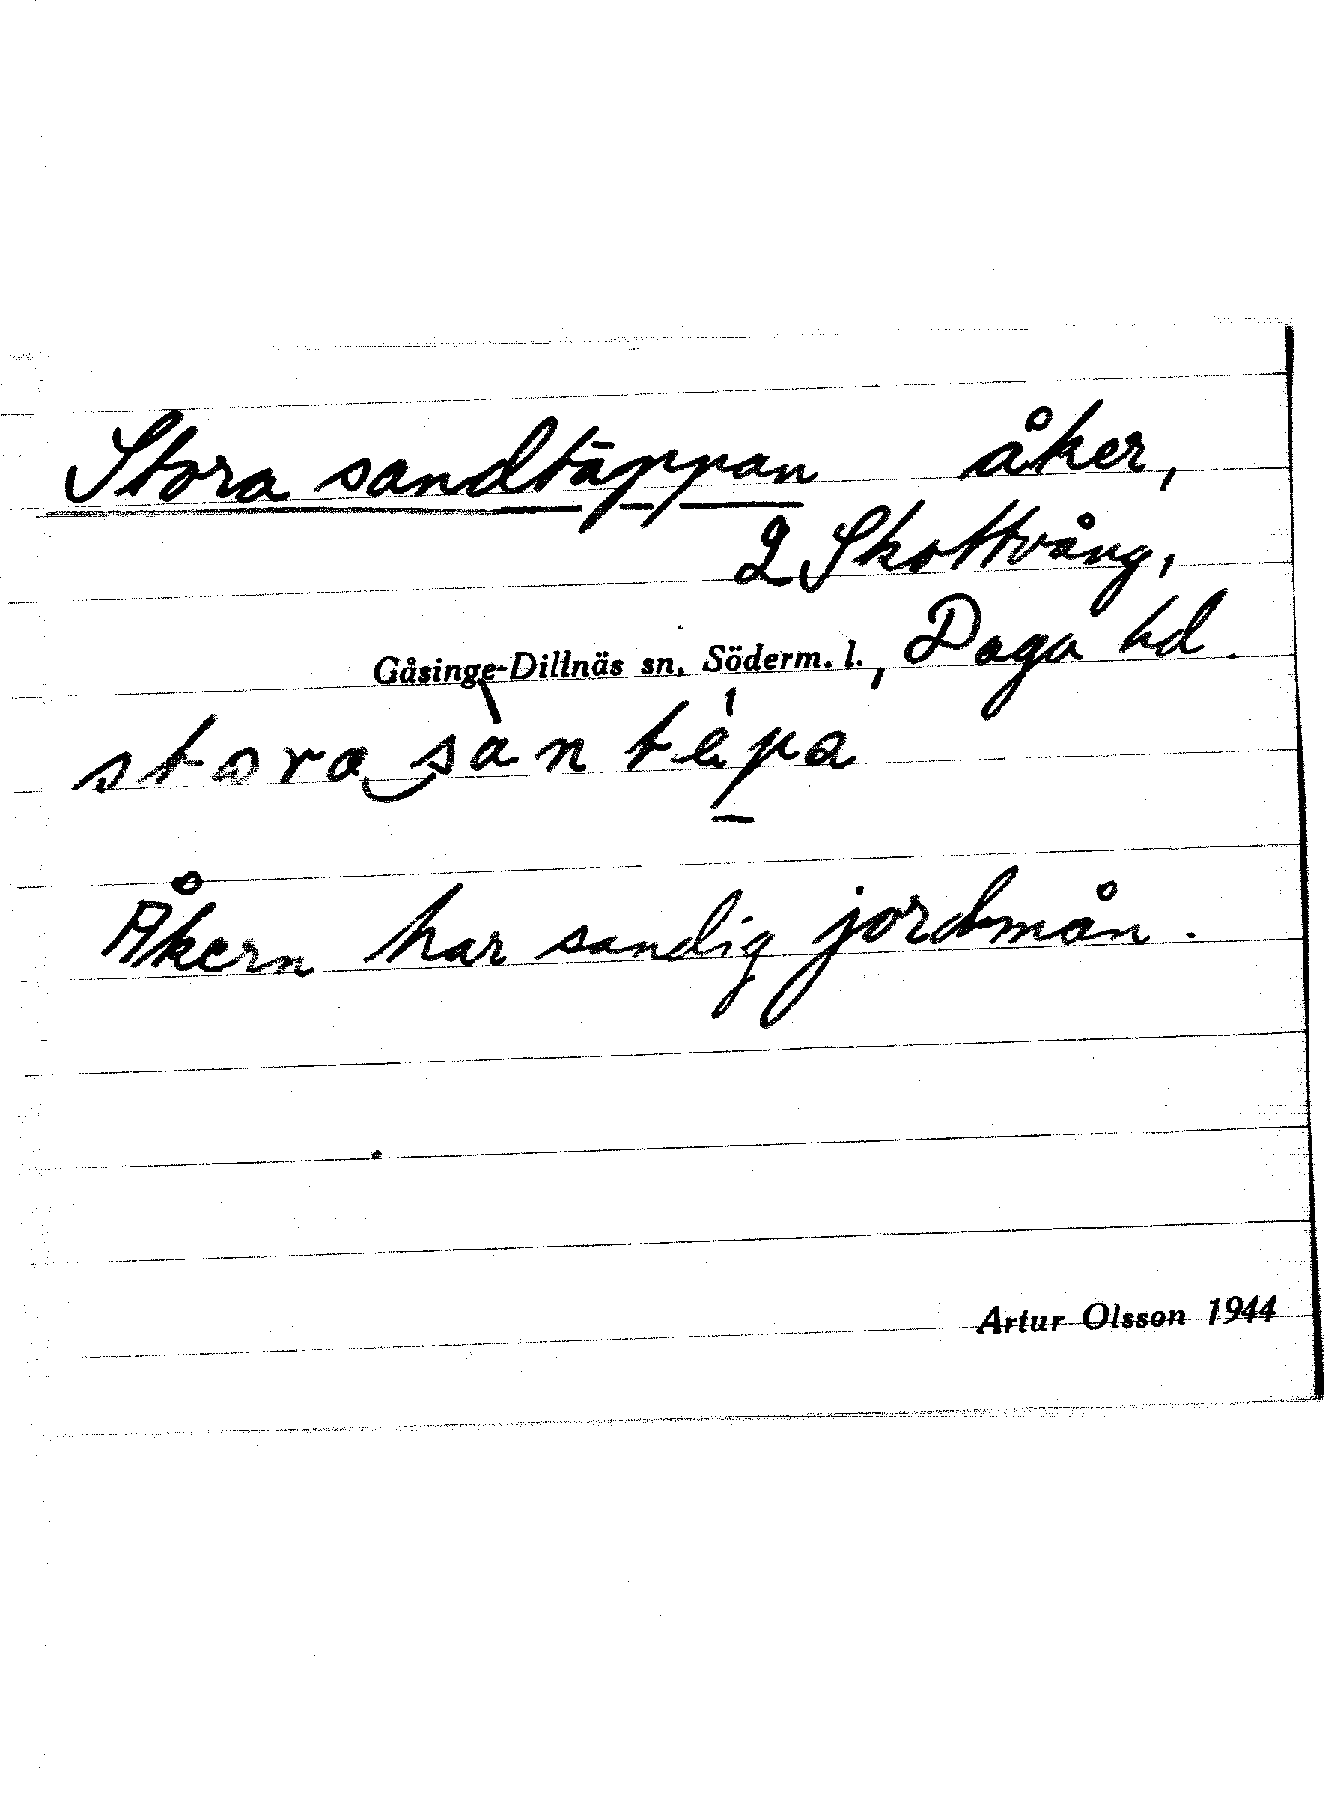 Stora sandtäppan åker,
2 Skottvång,
Gåsinge-Dillnäs sn, Söderm. l., Daga hd.
stora sàn tépa
Åkern har sandig jordmån.
Artur Olsson 1944